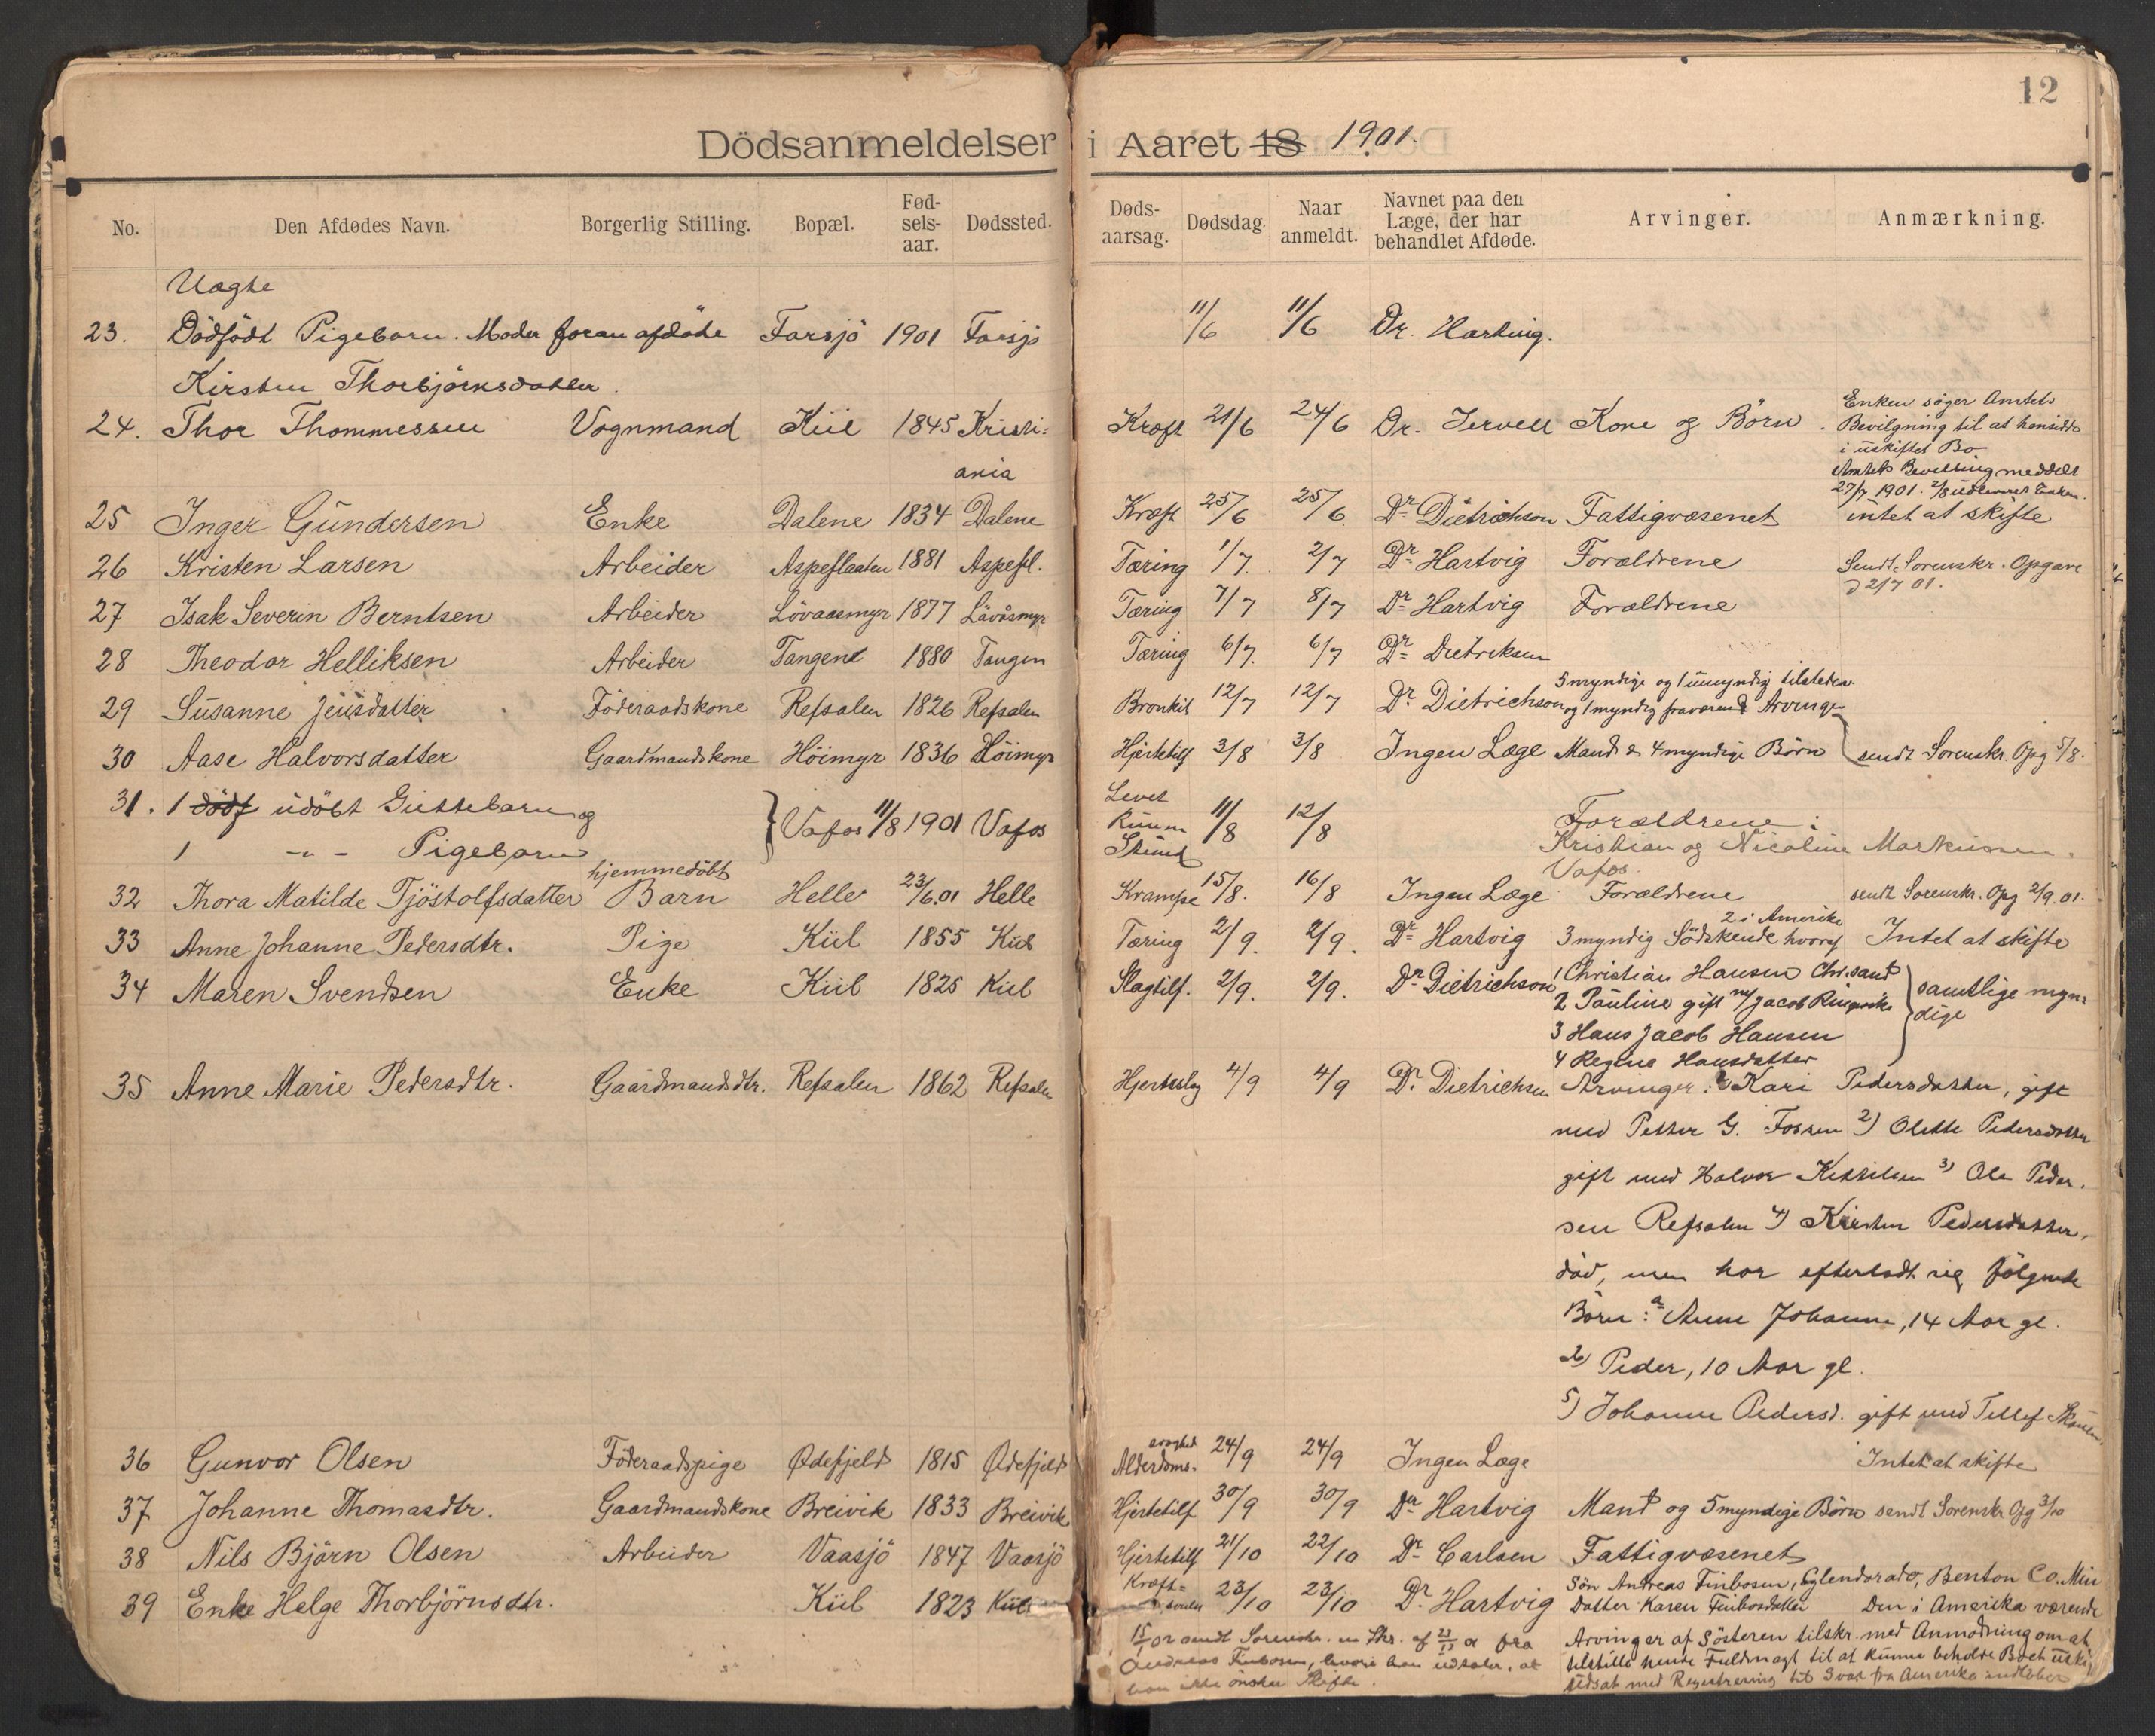 12
Dödsanmeldelser i Aaret 18 1901.
No. Den Afdødes Navn. Borgerlig Stilling. Bopæl. Fød-sels-aar. Dødssted. Døds-aarsag. Dødsdag. Naar anmeldt. Navnet paa den Læge, der har behandlet Afdøde. Arvinger. Anmærkning.
Uægte
23. Dödfödt Pigebarn. Moder foran afdöde Farsjö 1901 Farsjö 11/6 11/6 Dr. Hartvig.
Kirsten Thorbjörnsdatter.
24. Thor Thommessen Vognmand Kiil 1845 Kristi= Kræft 21/6 24/6 Dr. Jervell Kone og Börn. Enken söger Amtets
Bevilgning til at hensidde
i uskiftet Bo
ania Amtets Bevilling meddelt
27/7 1901. 2/8 udleveret Enken.
25 Inger Gündersen Enke Dalene 1834 Dalene Kræft 25/6 25/6 Dr Dietrichson Fattigvæsenet intet at skifte
26 Kristen Larsen Arbeider Aspeflaaten 1881 Aspefl. Tæring 1/7. 2/7 Dr Hartvig Forældrene Sendt Sorenskr. Opgave
d 2/7 01.
27 Isak Severin Berntsen Arbeider Lövaasmyr 1877 Lövåsmyr Tæring 7/7 8/7 Dr Hartvig Forældrene
28 Theodor Helliksen Arbeider Tangen 1880 Tangen Tæring 6/7. 6/7 Dr Dietriksen
5 myndige og 1 umyndig tilsteden
29 Susanne Jensdatter Föderaadskone Refsalen 1826 Refsalen Bronkit 12/7 12/7 Dr Dietrichson og 1 myndig fraværende Arvinge
30 Aase Halvorsdatter Gaardmandskone Höimyr 1836 Höimyr Hjertetilf 3/8 3/8 Ingen Læge Mand & 4 myndige Börn sendt Sorenskr. Opg 5/8.
31. 1 dödf udöbt Guttebarn og Levet
Vafos 11/8 1901 Vafos 11/8 12/8 Forældrene:
1 -"- Pigebarn Kristian og Nicoline Markussen.
Vafos.
hjemmedöbt
32 Thora Matilde Tjöstolfsdatter Barn Helle 23/6.01 Helle Krampe 15/8. 16/8 Ingen Læge Forældrene sendt Sorenskr. Opg 2/9.01.
2 i Amerika
33 Anne Johanne Pedersdtr. Pige Kiil 1855 Kiil Tæring 2/9. 2/9. Dr Hartvig 3 myndig Södskende hvoraf Intet at skifte
34 Maren Svendsen Enke Kiil 1825 Kiil Slagtilf. 2/9. 2/9. Dr Dietrichson 1 Christian Hansen Chr.sand samtlige myn=
2 Pauline gift m/ Jacob dige
3 Hans Jacob Hansen
4 Regine Hansdatter
35 Anne Marie Pedersdtr. Gaardmandsdtr. Refsalen 1862 Refsalen Hjerteslag 4/9 4/9 Dr. Dietrichsen Arvinger: 1) Kari Pedersdatter, gift
med Petter G. Fossen 2) Olette Pedersdatter
gift med Halvor Kittilsen 3) Ole Peder.
sen Refsalen 4) Kirsten Pedersdatter,
död, men har efterladt sig fölgende
Börn: a Anne Johanne, 14 Aar gl.
Peder, 10 Aar gl.
5) Johanne Pedersd. gift med Tellef
svaghed
36 Gunvor Olsen Föderaadspige Ødefjeld 1815 Ødefjeld Alderdoms- 24/9 24/9 Ingen Læge Intet at skifte
37 Johanne Thomasdtr. Gaardmandskone Breivik 1833 Breivik Hjertetilf 30/9 30/9 Dr Hartvig Mand og 5 myndige Börn sendt Sorenskr Opg 3/10
38 Nils Björn Olsen Arbeider Vaasjö 1847 Vaasjö Hjertetilf 21/10 22/10 Dr Carlsen Fattigvæsenet
39 Enke Helge Thorbjörnsdtr. Kiil 1823 Kiil Kræft= 23/10 23/10 Dr. Hartvig Sön Andreas Finbosen, Benton Co. Min
Datter Karen Finbosdatter Den i Amerika værende
Arvinger af Sösteren tilskr. med Anmodning om at
tilstille hende Fuldmagt til at kunne beholde Boet uski
udsat med Registrering til Svar fra Amerika indlöber
sendt Sorenskr. fra
Andreas Finbosen, hvori han udtaler, at
han ikke önsker Skifte.